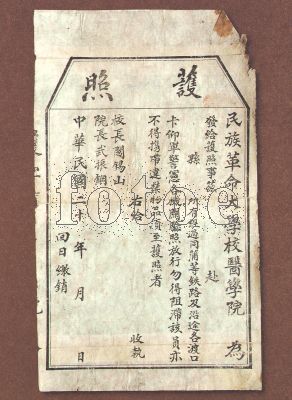 護照
民族革命大學校醫學院 為
發給護照事茲 赴
縣 所有經過同蒲等鉄路及沿途各渡口
卡仰軍警憲各機關驗照放行勿得阻滯該員亦
不得携帶違禁物品須至護照者
右給 收執
校長閻錫山
院長武
中華民國二十 年 月 日
回日繳銷
fotoe